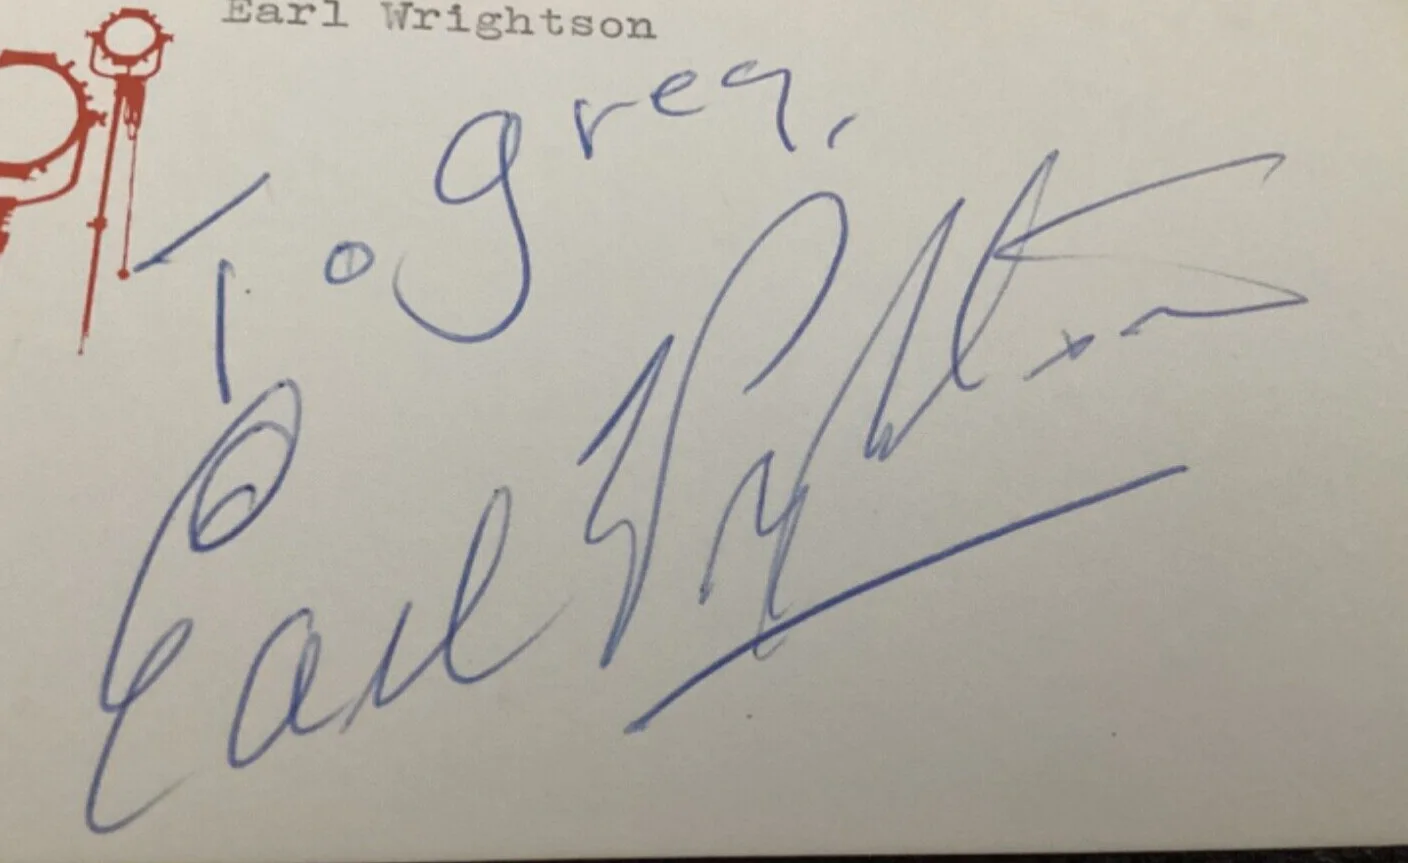 Earl Wrightson
To greg,
Earl Wrightson